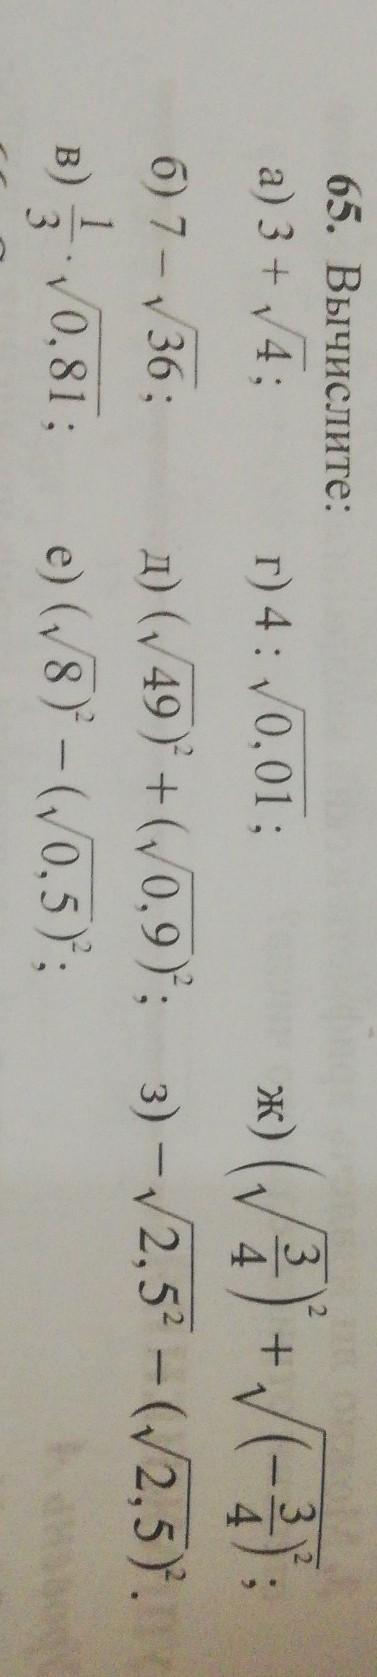 65. Вычислите:
а) 3 + √4; г) 4 : √0,01; ж) (√(3/4))² + √((−3/4)²);
б) 7 − √36; д) (√49)² + (√0,9)²; з) −√(2,5²) − (√2,5)².
в) 1/3 · √0,81; е) (√8)² − (√0,5)²;